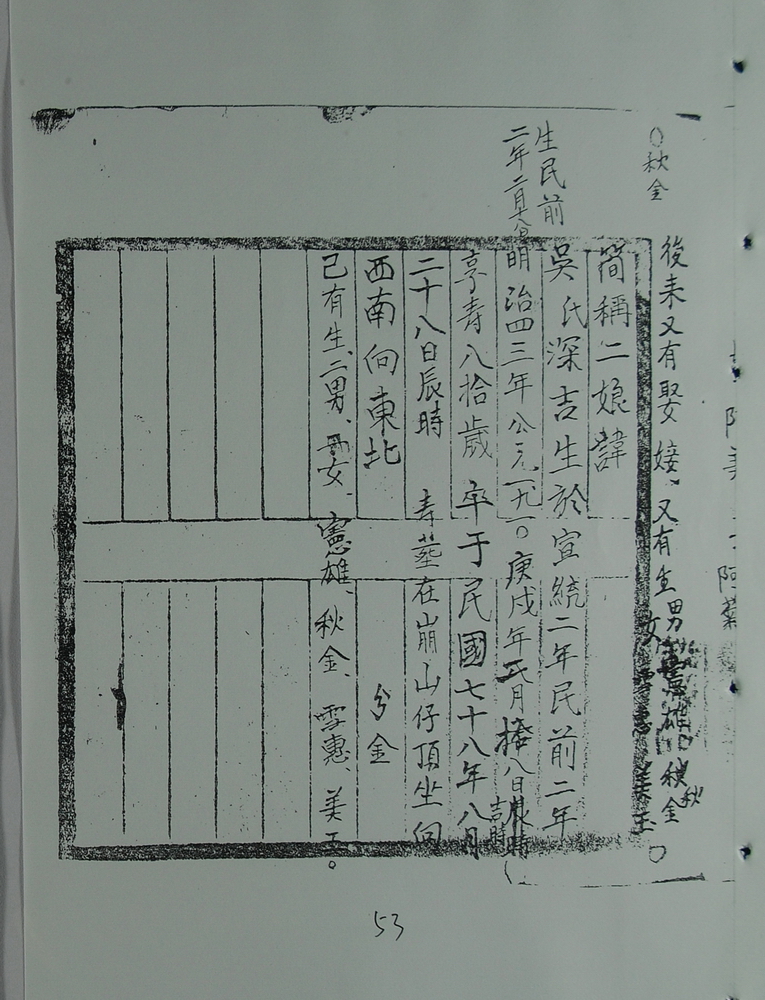 秋金
後来又有娶 婈、又有生男 憲雄 秋金
秋
女 雪惠 美玉
簡稱二娘諱
吳氏深吉生於宣統二年民前二年
生民前
二年
明治四三年 公元一九一〇庚戌年 月 八日辰時
吉時
享寿八拾歲 卒于民國七十八年八月
二十八日辰時 寿墓在崩山仔頂坐向
西南向東北 分金
己有生、二男、女、憲雄、秋金、雪惠、美玉。
53